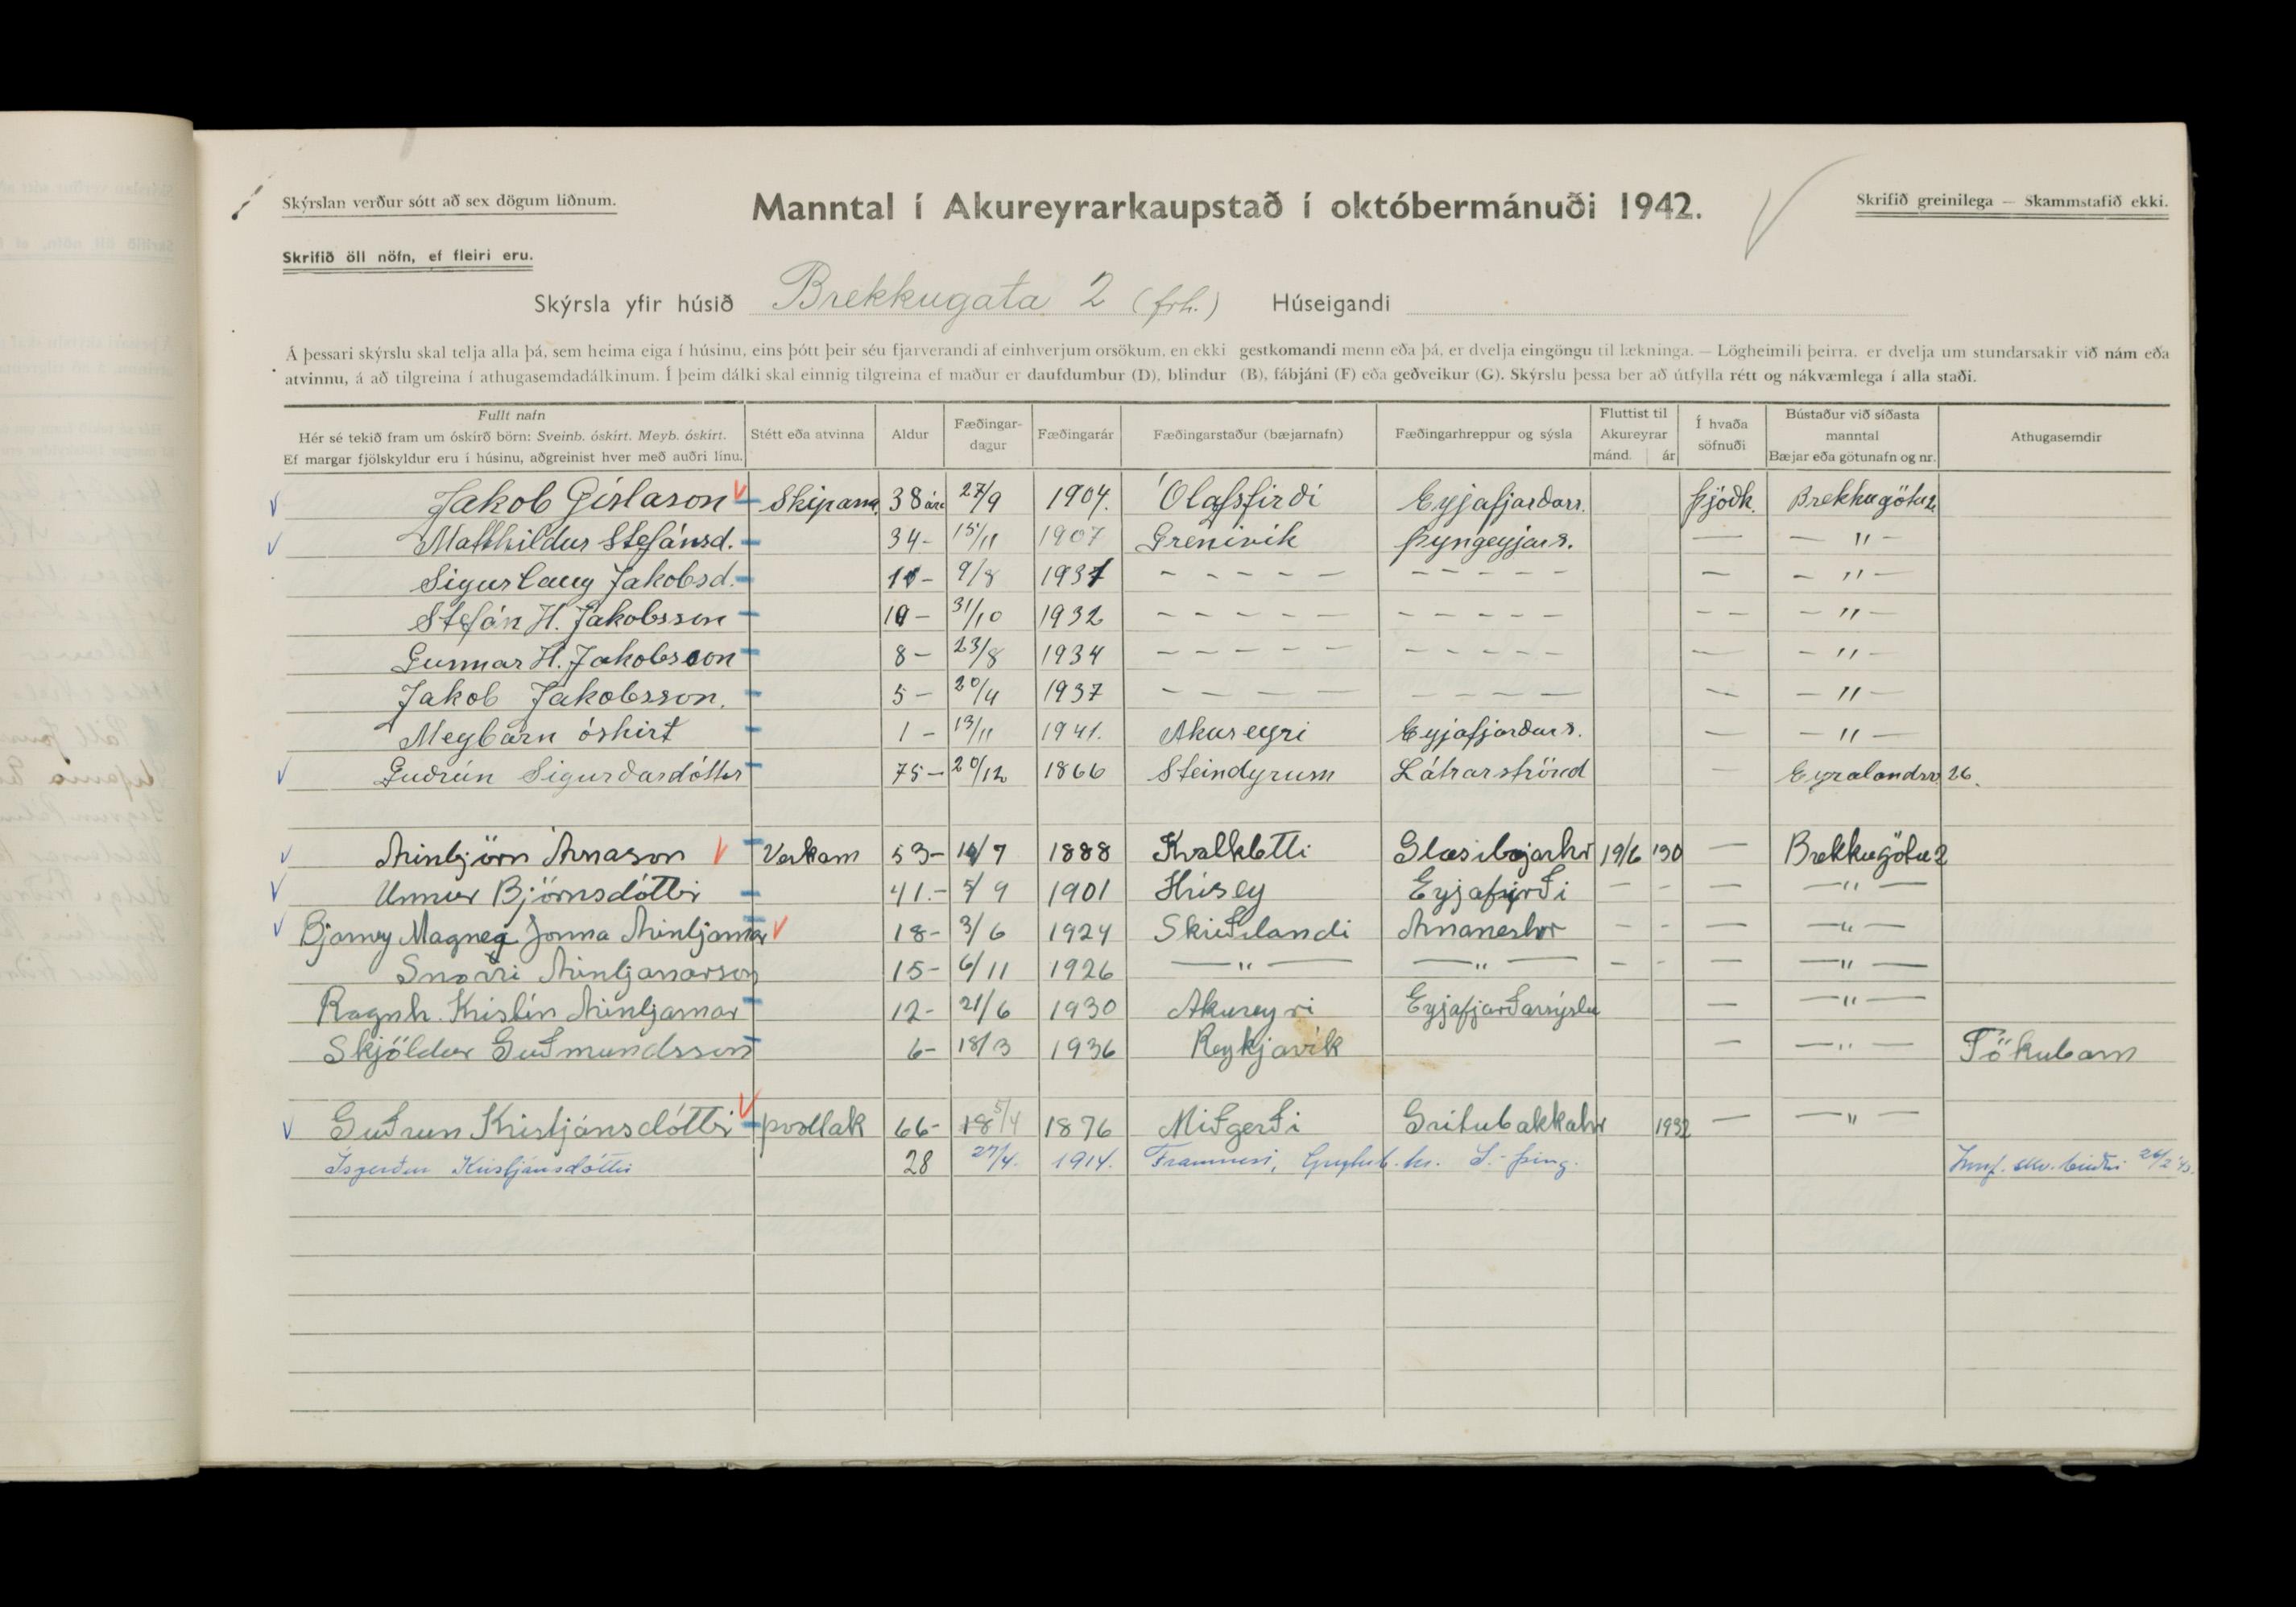 Skýrslan verður sótt að sex dögum liðnum.
Manntal í Akureyrarkaupstað í októbermánuði 1942.
Skrifið greinilega — Skammstafið ekki.
Skrifið öll nöfn, ef fleiri eru.
Skýrsla yfir húsið Brekkugata 2 (frh.) Húseigandi
Á þessari skýrslu skal telja alla þá, sem heima eiga í húsinu, eins þótt þeir séu fjarverandi af einhverjum orsökum, en ekki gestkomandi menn eða þá, er dvelja eingöngu til lækninga. — Lögheimili þeirra, er dvelja um stundarsakir við nám eða
atvinnu, á að tilgreina í athugasemdadálkinum. Í þeim dálki skal einnig tilgreina ef maður er daufdumbur (D), blindur (B), fábjáni (F) eða geðveikur (G). Skýrslu þessa ber að útfylla rétt og nákvæmlega í alla staði.
Fullt nafn
Hér sé tekið fram um óskírð börn: Sveinb. óskírt. Meyb. óskírt.
Ef margar fjölskyldur eru í húsinu, aðgreinist hver með auðri línu.
Stétt eða atvinna
Aldur
Fæðingar-
dagur
Fæðingarár
Fæðingarstaður (bæjarnafn)
Fæðingarhreppur og sýsla
Fluttist til
Akureyrar
mánd. ár
Í hvaða
söfnuði
Bústaður við síðasta
manntal
Bæjar eða götunafn og nr.
Athugasemdir
Jakob Gíslason Skipasm. 38 ára 27/9 1904. Ólafsfirði Eyjafjarðars. Þjóðk. Brekkugötu 2
Matthildur Stefánsd. 34 - 15/11 1907 Grenivík Þyngeyjars. — — " —
Sigurlaug Jakobsd. 11 - 9/8 1931 - - - - - - - - - - — — " —
Stefán H. Jakobsson 10 - 31/10 1932 - - - - - - - - - - - - — " —
Gunnar H. Jakobsson 8 - 23/8 1934 - - - - - - - - - - — — " —
Jakob Jakobsson. 5 - 20/4 1937 — — — — — — — — — — " —
Meybarn óskírt 1 - 13/11 1941. Akureyri Eyjafjarðars. — — " —
Guðrún Sigurðardóttir 75 - 20/12 1866 Steindyrum Látraströnd — Eyralandsv. 26.
Arinbjörn Árnason Verkam 53 - 14/7 1888 Kvalkletti Glæsibæjarhr 19/6 '30 — Brekkugötu 2
Unnur Björnsdóttir 41. - 5/9 1901 Hrísey Eyjafirði — - — — " —
Bjarney Magnea Jonna Arinbjarnar 18 - 3/6 1924 Skriðulandi Arnaneshr - - — — " —
Snorri Arinbjarnarson 15 - 6/11 1926 — " — — " — - - — — " —
Ragnh. Kristín Arinbjarnar 12 - 21/6 1930 Akureyri Eyjafjarðarsýslu — — " —
Skjöldur Guðmundsson 6 - 18/3 1936 Reykjavík — — " — Tökubarn
Guðrun Kristjánsdóttir 66 - 5/4 1876 Miðgerði Grítubakkahr 1932 — — " —
Ísgerður Kristjánsdóttir 28 27/4. 1914. Framnesi, Grýtub.hr. S.-Þing.